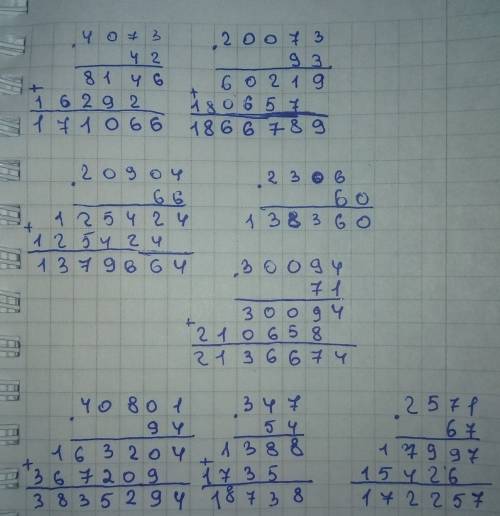 .4073
42
8146
+
16292
171066
.20073
93
60219
+
180657
1866789
.20904
66
125424
+
125424
1379664
.2306
60
138360
.30094
71
30094
+
210658
2136674
.40801
94
163204
+
367209
3835294
.347
54
1388
+
1735
18738
.2571
67
17997
15426
172257